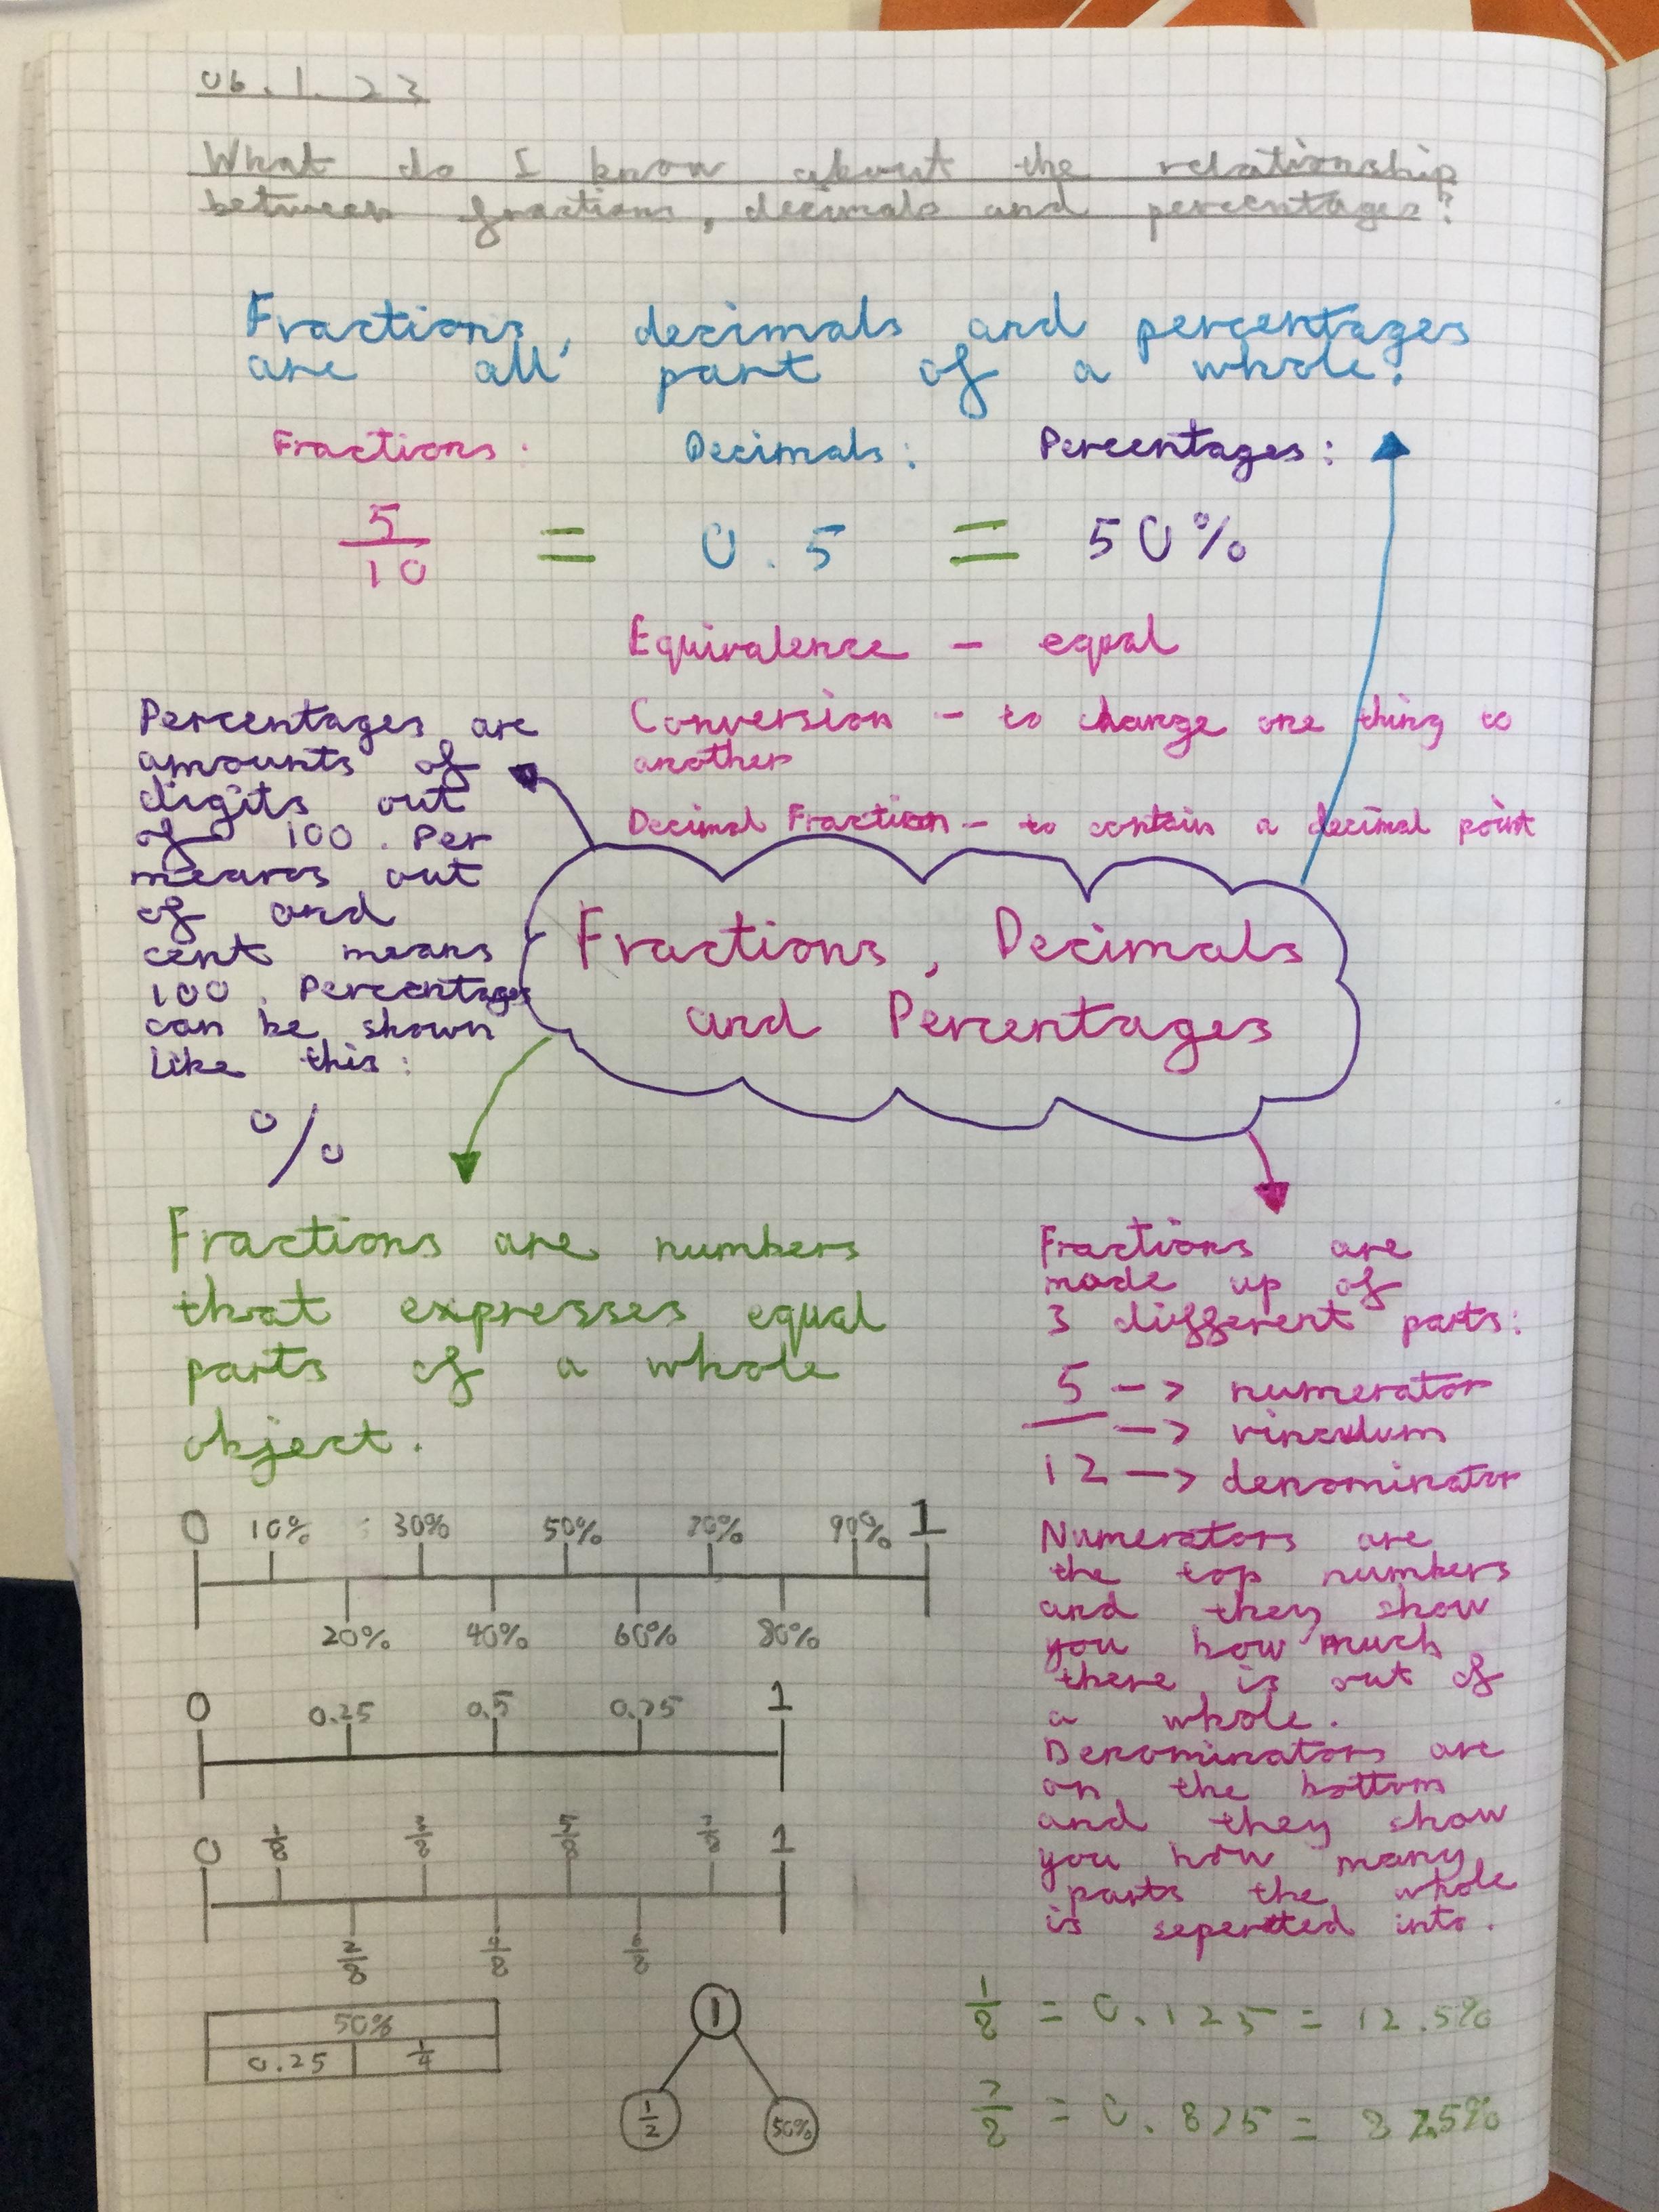 06.1.23
What do I know about the relationship
between fractions, decimals and percentages?
Fractions, decimals and percentages
are all part of a whole.
Fractions: Decimals: Percentages:
5/10 = 0.5 = 50%
Equivalence - equal
Conversion - to change one thing to
another
Decimal Fraction - to contain a decimal point
Percentages are
amounts of
digits out
of 100. Per
means out
of and
cent means
100. Percentages
can be shown
like this:
%
Fractions, Decimals
and Percentages
Fractions are numbers
that expresses equal
parts of a whole
object.
Fractions are
made up of
3 different parts:
5 -> numerator
— -> vinculum
12 -> denominator
Numerators are
the top numbers
and they show
you how much
there is out of
a whole.
Denominators are
on the bottom
and they show
you how many
parts the whole
is seperated into.
0 10% 30% 50% 70% 90% 1
20% 40% 60% 80%
0 0.25 0.5 0.75 1
0 1/8 3/8 5/8 7/8 1
2/8 4/8 6/8
50%
0.25 1/4
1
1/2 50%
1/8 = 0.125 = 12.5%
7/8 = 0.875 = 87.5%